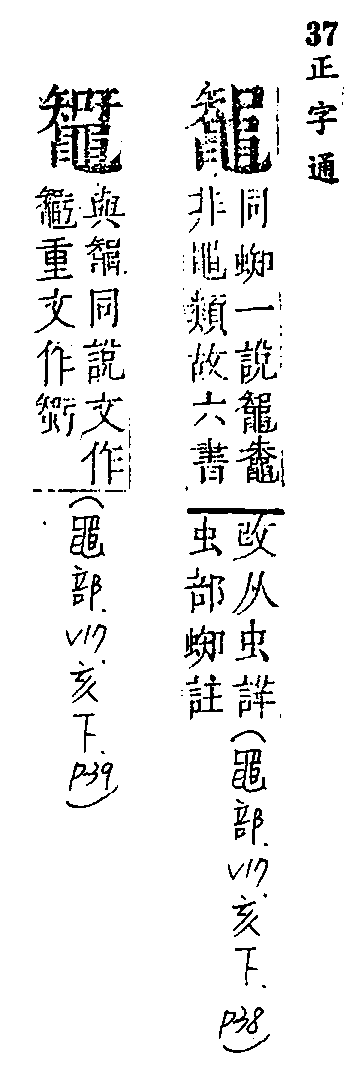 37正字通
鼅
同蜘一說鼅鼄
非黽類故六書
改从虫詳
虫部蜘註
(黽部.V17亥下.P38)
與鼅同說文作
重文作
(黽部.V17亥下.P39)